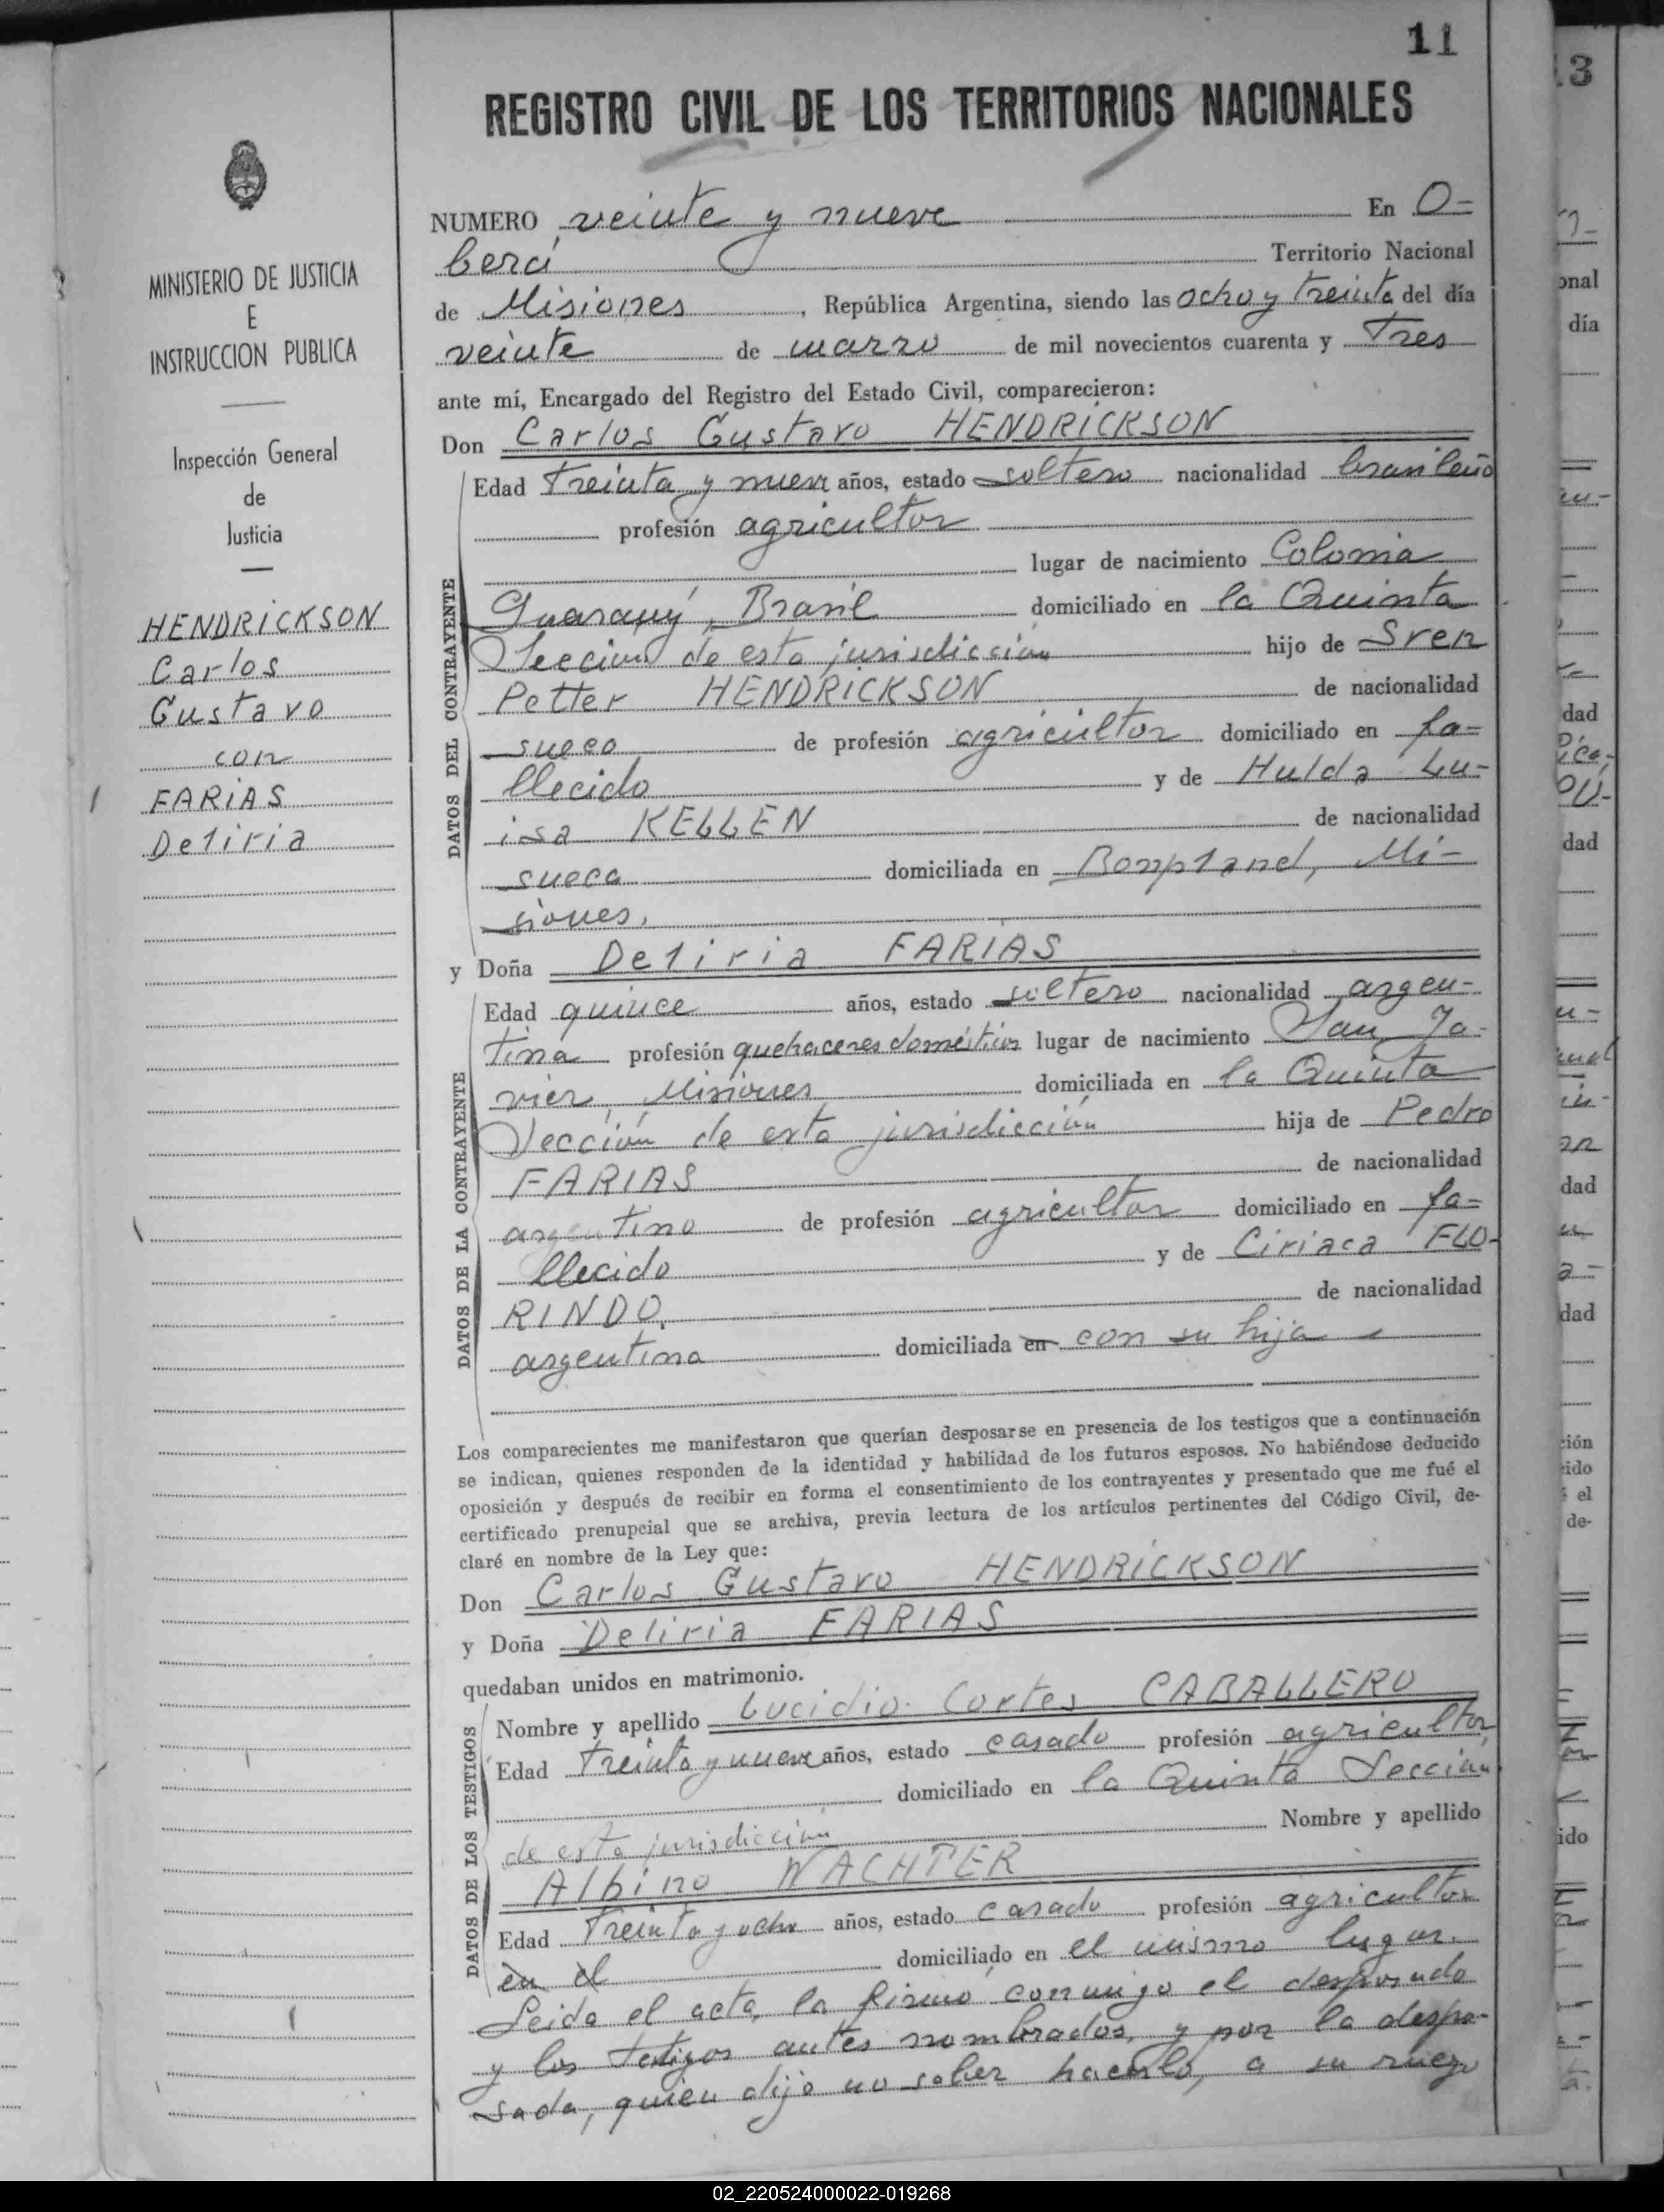 11
REGISTRO CIVIL DE LOS TERRITORIOS NACIONALES
MINISTERIO DE JUSTICIA
E
INSTRUCCION PUBLICA
Inspección General
de
Justicia
HENDRICKSON
Carlos
Gustavo
con
FARIAS
Deliria
NUMERO veinte y nueve En O-
berá Territorio Nacional
de Misiones, República Argentina, siendo las ocho y treinta del día
veinte de marzo de mil novecientos cuarenta y tres
ante mí, Encargado del Registro del Estado Civil, comparecieron:
Don Carlos Gustavo HENDRICKSON
DATOS DEL CONTRAYENTE
Edad treinta y nueve años, estado soltero nacionalidad brasileño
profesión agricultor
lugar de nacimiento Colonia
Guarany, Brasil domiciliado en la Quinta
Seccion de esta jurisdicción hijo de Sven
Petter HENDRICKSON de nacionalidad
sueco de profesión agricultor domiciliado en fa=
llecido y de Hulda Lu-
isa KELLEN de nacionalidad
sueca domiciliada en Bonpland, Mi-
siones.
y Doña Deliria FARIAS
DATOS DE LA CONTRAYENTE
Edad quince años, estado soltera nacionalidad argen-
tina profesión quehaceres domésticos lugar de nacimiento San Ja-
vier, Misiones domiciliada en la Quinta
Sección de esta jurisdicción hija de Pedro
FARIAS de nacionalidad
argentino de profesión agricultor domiciliado en fa=
llecido y de Ciriaca FLO-
RINDO, de nacionalidad
argentina domiciliada en con su hija
Los comparecientes me manifestaron que querían desposarse en presencia de los testigos que a continuación
se indican, quienes responden de la identidad y habilidad de los futuros esposos. No habiéndose deducido
oposición y después de recibir en forma el consentimiento de los contrayentes y presentado que me fué el
certificado prenupcial que se archiva, previa lectura de los artículos pertinentes del Código Civil, de-
claré en nombre de la Ley que:
Don Carlos Gustavo HENDRICKSON
y Doña Deliria FARIAS
quedaban unidos en matrimonio.
DATOS DE LOS TESTIGOS
Nombre y apellido Lucidio Cortes CABALLERO
Edad treinta y nueve años, estado casado profesión agricultor,
domiciliado en la Quinta Seccion
de esta jurisdicción Nombre y apellido
Albino WACHTER
Edad treinta y ocho años, estado casado profesión agricultor
en el domiciliado en el mismo lugar.
Leida el acta, la firmó conmigo el desposado
y los testigos antes nombrados, y por la despo-
sada, quien dijo no saber hacerlo, a su ruego
02_220524000022-019268